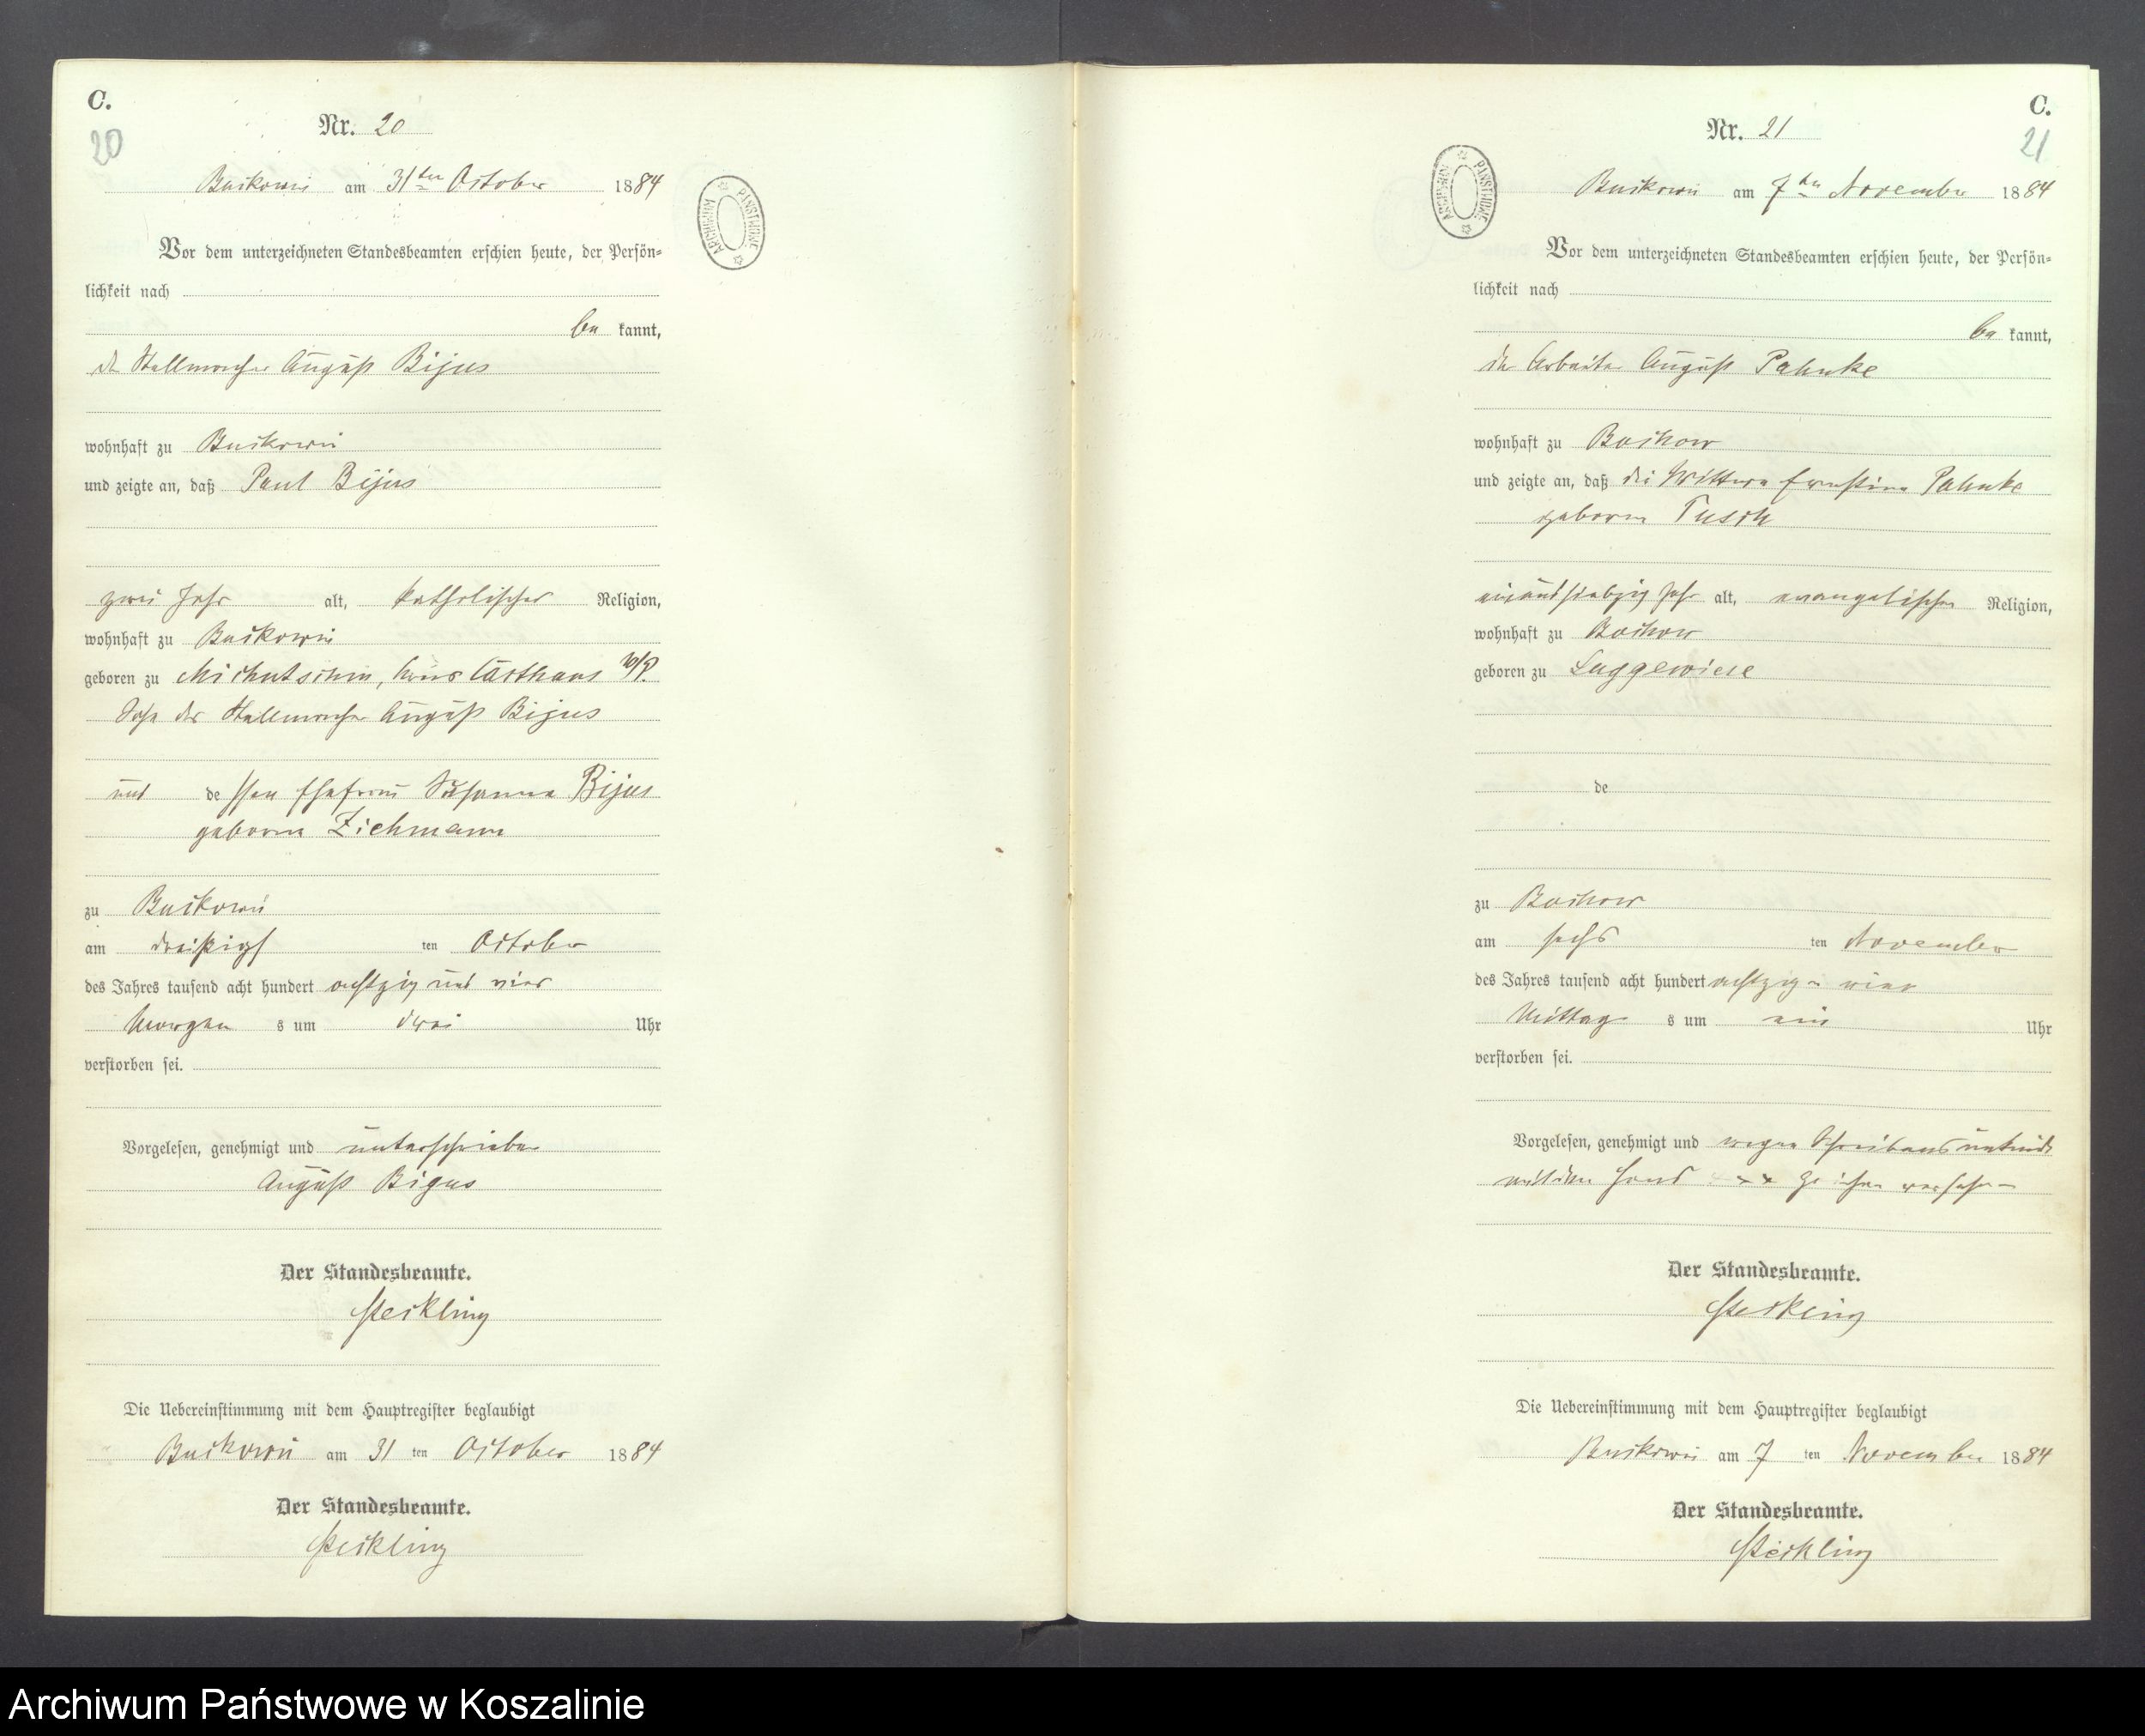 C.
20
Nr. 20
Buckowin am 31ten October 1884
Vor dem unterzeichneten Standesbeamten erschien heute, der Persön-
lichkeit nach
be kannt,
der Stellmacher August Bijus
wohnhaft zu Buckowin
und zeigte an, daß Paul Bijus
zwei Jahr alt, katholischer Religion,
wohnhaft zu Buckowin
geboren zu Michutschin, Kreis Carthaus W/P.
Sohn des Stellmacher August Bijus
und de ssen Ehefrau Susanna Bijus
geborne Zichmann
zu Buckowin
am dreißigst ten October
des Jahres tausend acht hundert achtzig und vier
Morgen s um drei Uhr
verstorben sei.
Vorgelesen, genehmigt und unterschrieben
August Bigus
Der Standesbeamte.
Steckling
Die Uebereinstimmung mit dem Hauptregister beglaubigt
Buckowin am 31 ten October 1884
Der Standesbeamte.
Steckling
ARCHIWUM PAŃSTWOWE
C.
21
Nr. 21
Buckowin am 7ten November 1884
Vor dem unterzeichneten Standesbeamten erschien heute, der Persön-
lichkeit nach
be kannt,
der Arbeiter August Pahnke
wohnhaft zu Bochow
und zeigte an, daß die Wittwe Ernstine Pahnke
geborne Tusch
einundsiebzig Jahr alt, evangelischer Religion,
wohnhaft zu Bochow
geboren zu Luggewiese
de
zu Bochow
am sechs ten November
des Jahres tausend acht hundert achtzig u vier
Mittag s um ein Uhr
verstorben sei.
Vorgelesen, genehmigt und wegen Schreibensunkunde
mit den Hand x x x Zeichen versehen
Der Standesbeamte.
Steckling
Die Uebereinstimmung mit dem Hauptregister beglaubigt
Buckowin am 7 ten November 1884
Der Standesbeamte.
Steckling
ARCHIWUM PAŃSTWOWE
Archiwum Państwowe w Koszalinie